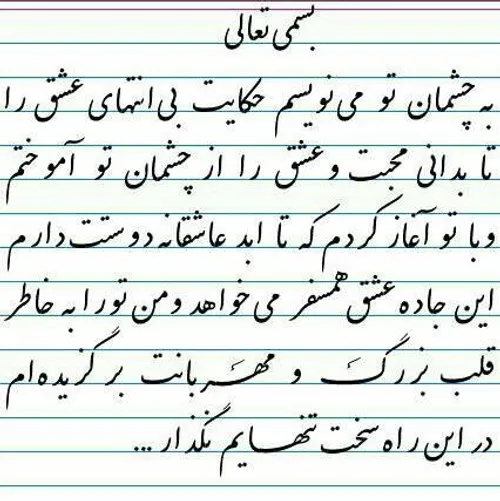 بسمی تعالی
به چشمان تو می نویسم حکایت بی انتهای عشق را
تا بدانی محبت و عشق را از چشمان تو آموختم
وبا تو آغاز کردم که تا ابد عاشقانه دوستت دارم
این جاده عشق همسفر می خواهد ومن تورا به خاطر
قلب بزرگ و مهربانت برگزیده ام
در این راه سخت تنهایم نگذار ...